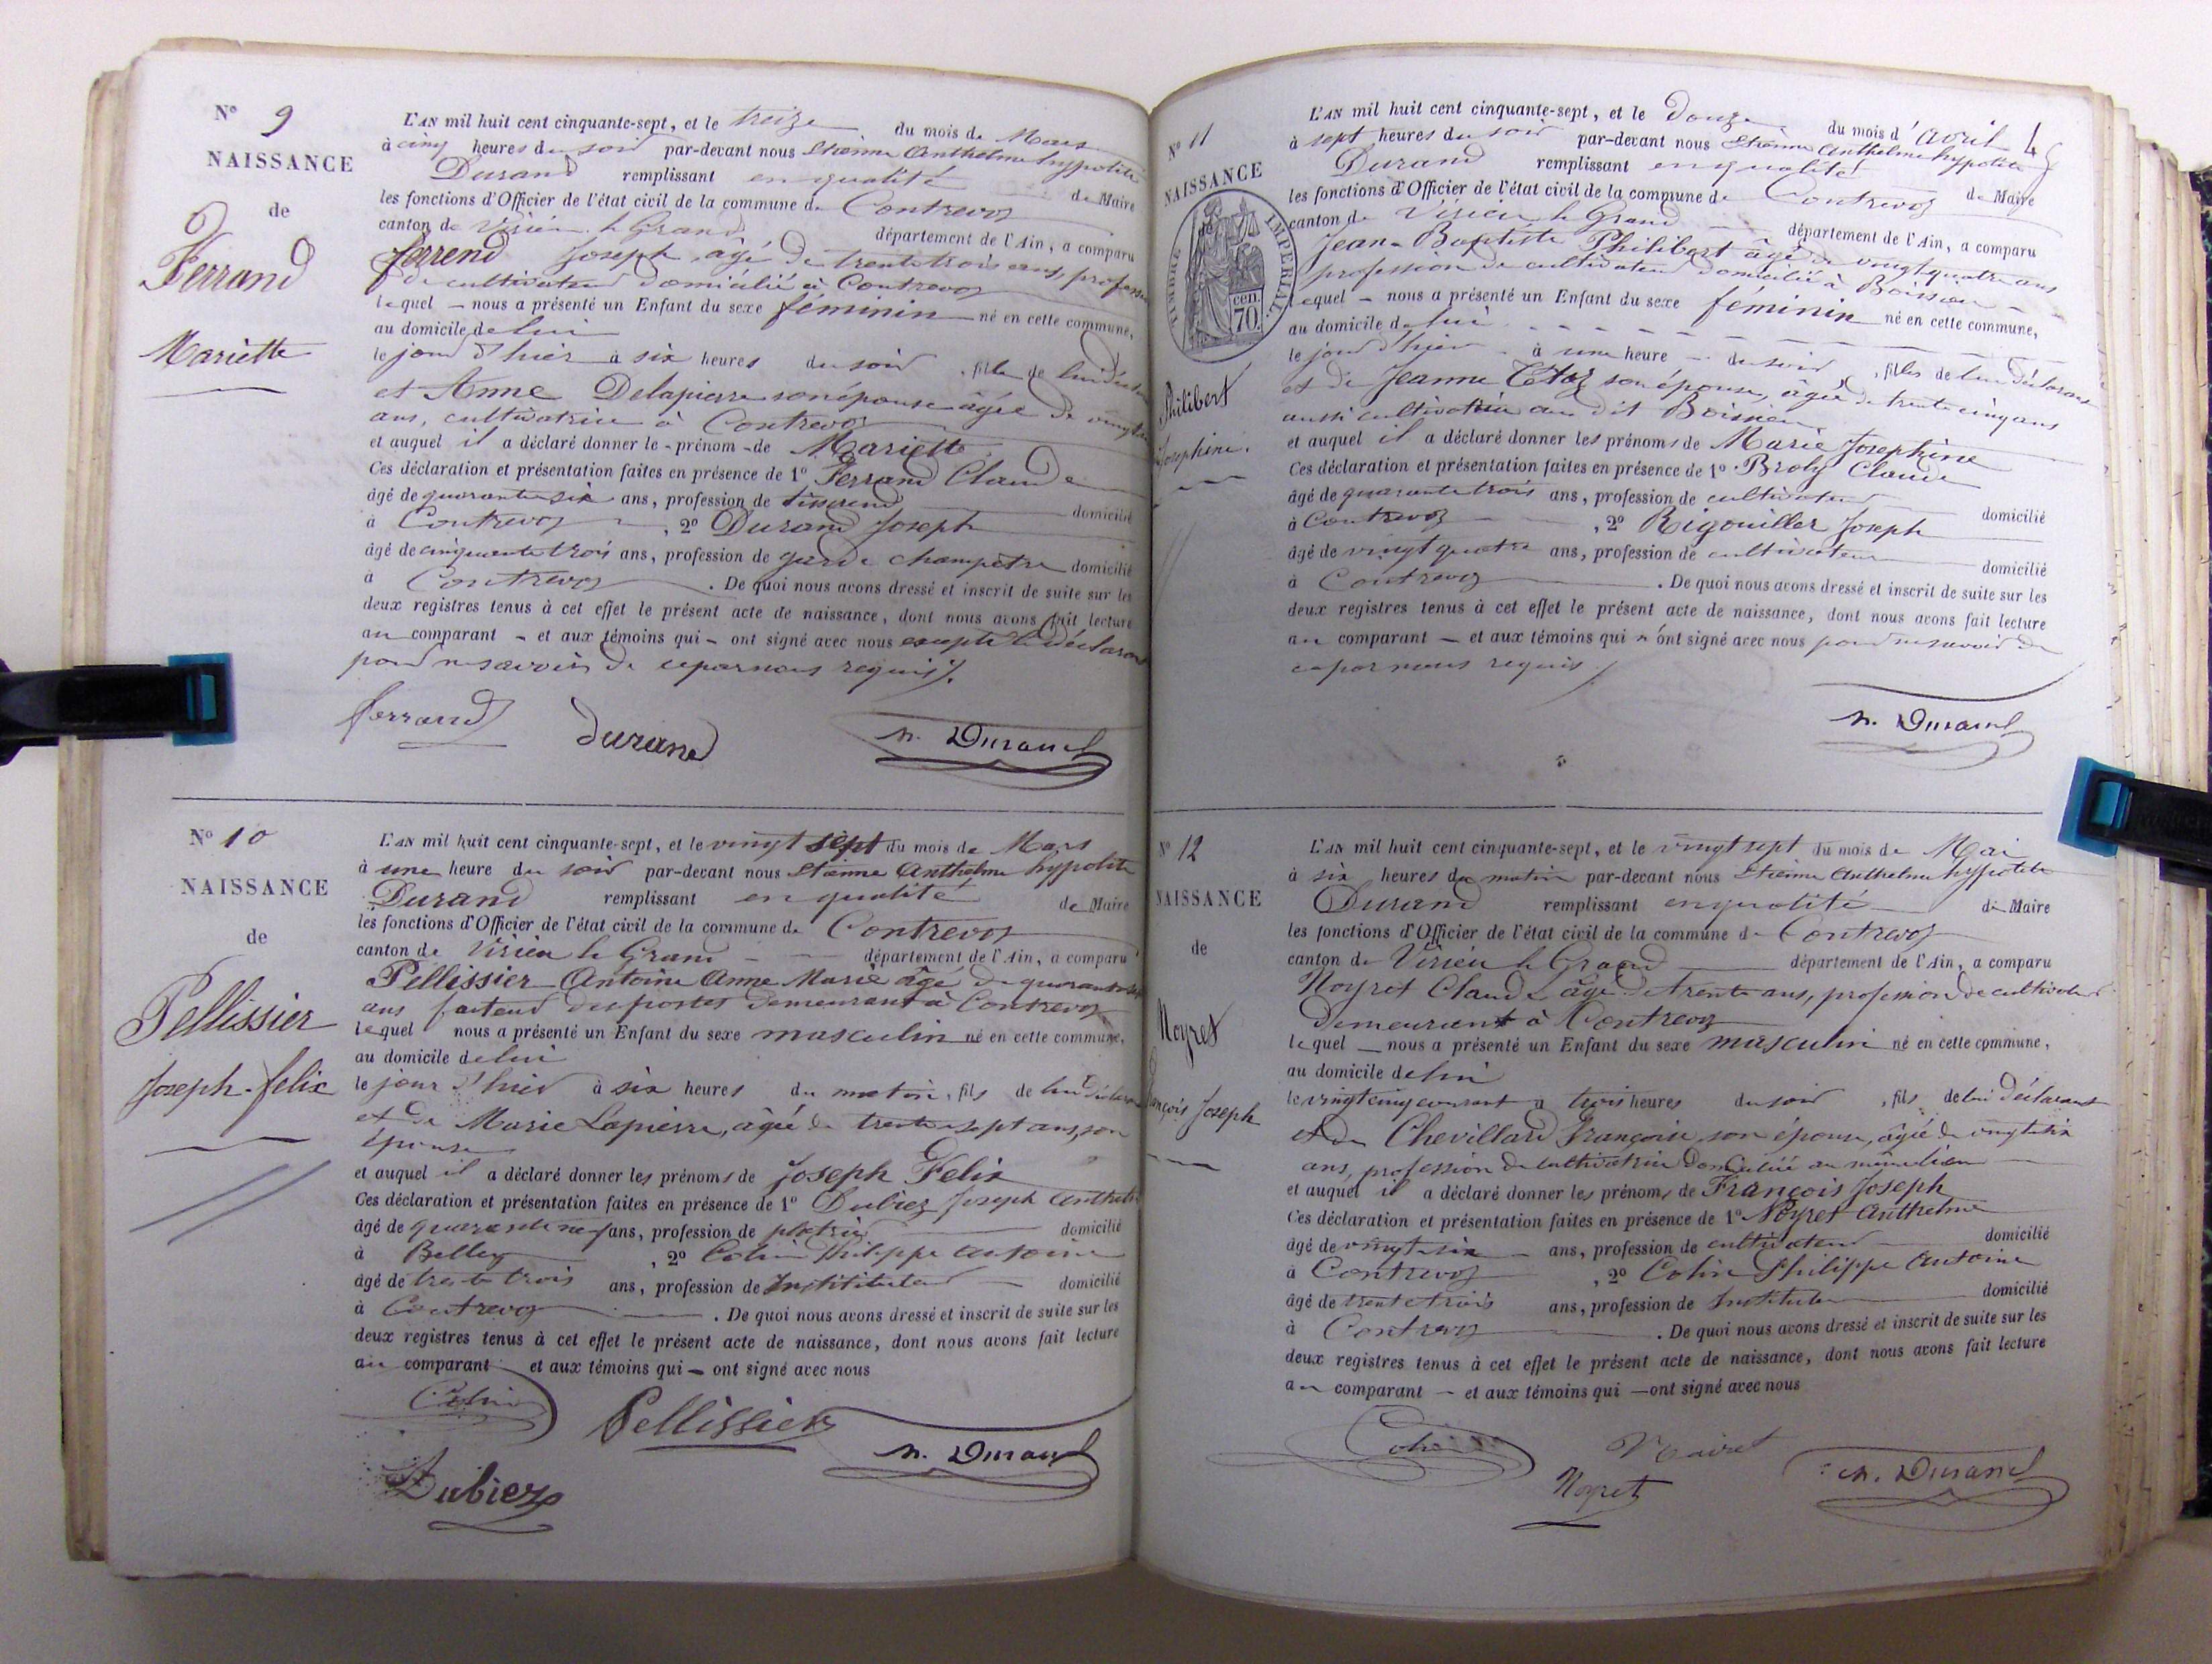 N° 9
NAISSANCE
de
Ferrand
Mariette
L'AN mil huit cent cinquante-sept, et le treize du mois de Mars
à cinq heures du soir par-devant nous Etienne Anthelme hyppolite
Durand remplissant en qualité de Maire
les fonctions d'Officier de l'état civil de la commune de Contrevoz
canton de Virieu le Grand département de l'Ain, a comparu
ferrend Joseph, âgé de trente trois ans, profession
de cultivateur domicilié à Contrevoz
lequel – nous a présenté un Enfant du sexe féminin né en cette commune,
au domicile de lui
le jour d'hier à six heures du soir, fille de lui déclarant
et Anne Delapierre son épouse âgée de
ans, cultivatrice à Contrevoz
et auquel il a déclaré donner le - prénom - de Mariette
Ces déclaration et présentation faites en présence de 1° Ferrand Claude
âgé de quarante six ans, profession de tisserend domicilié
à Contrevoz, 2° Durand Joseph
âgé de cinquante trois ans, profession de garde champetre domicilié
à Contrevoz. De quoi nous avons dressé et inscrit de suite sur les
deux registres tenus à cet effet le présent acte de naissance, dont nous avons fait lecture
au comparant – et aux témoins qui – ont signé avec nous excepté le déclarant
pour ne savoir de ce par nous requis.
ferrand
durand
h. Durand
N° 10
NAISSANCE
de
Pellissier
Joseph-felix
L'AN mil huit cent cinquante-sept, et le vingt sept du mois de Mars
à une heure du soir par-devant nous Etienne Anthelme hyppolite
Durand remplissant en qualité de Maire
les fonctions d'Officier de l'état civil de la commune de Contrevoz
canton de Virieu le Grand département de l'Ain, a comparu
Pellissier Antoine Anne Marie âgé de
ans facteur des postes demeurant à Contrevoz
lequel nous a présenté un Enfant du sexe masculin né en cette commune,
au domicile de lui
le jour d'hier à six heures du matin, fils de lui déclarant
et de Marie Lapierre, âgée de trente sept ans, son
épouse
et auquel il a déclaré donner les prénoms de Joseph Felix
Ces déclaration et présentation faites en présence de 1° Dubiez Joseph
âgé de quarante neuf ans, profession de platrier domicilié
à Belley, 2° Colin Philippe Antoine
âgé de trente trois ans, profession de Instituteur domicilié
à Contrevoz. De quoi nous avons dressé et inscrit de suite sur les
deux registres tenus à cet effet le présent acte de naissance, dont nous avons fait lecture
au comparant et aux témoins qui – ont signé avec nous
Colin
Pellissier
h. Durand
Dubiez
N° 11
NAISSANCE
de
TIMBRE IMPÉRIAL.
70 cen.
Philibert
Josephine.
L'AN mil huit cent cinquante-sept, et le douze du mois d'avril
à sept heures du soir par-devant nous Etienne Anthelme hyppolite
Durand remplissant en qualité de Maire
les fonctions d'Officier de l'état civil de la commune de Contrevoz
canton de Virieu le Grand département de l'Ain, a comparu
Jean-Baptiste Philibert âgé de vingt quatre ans
profession de cultivateur domicilié à Boissieu
lequel – nous a présenté un Enfant du sexe féminin né en cette commune,
au domicile de lui
le jour d'hier à une heure du soir, filles de lui déclarant
et de Jeanne son épouse, âgée de trente cinq ans
aussi cultivatrice au dit Boissieu
et auquel il a déclaré donner les prénoms de Marie Josephine
Ces déclaration et présentation faites en présence de 1° Broly Claude
âgé de quarante trois ans, profession de cultivateur domicilié
à Contrevoz, 2° Rigouiller Joseph
âgé de vingt quatre ans, profession de cultivateur domicilié
à Contrevoz. De quoi nous avons dressé et inscrit de suite sur les
deux registres tenus à cet effet le présent acte de naissance, dont nous avons fait lecture
au comparant – et aux témoins qui n'ont signé avec nous pour ne savoir de
ce par nous requis.
h. Durand
N° 12
NAISSANCE
de
Noyret
François Joseph
L'AN mil huit cent cinquante-sept, et le vingt sept du mois de Mai
à six heures du matin par-devant nous Etienne Anthelme hyppolite
Durand remplissant en qualité de Maire
les fonctions d'Officier de l'état civil de la commune de Contrevoz
canton de Virieu le Grand département de l'Ain, a comparu
Noyret Claude âgé de trente ans, profession de cultivateur
demeurant à Contrevoz
lequel – nous a présenté un Enfant du sexe masculin né en cette commune,
au domicile de lui
le vingt cinq courant à trois heures du soir, fils de lui déclarant
et de Chevillard Françoise son épouse, âgée de vingt six
ans, profession de cultivatrice domiciliée au même lieu
et auquel il a déclaré donner les prénoms de François Joseph
Ces déclaration et présentation faites en présence de 1° Noyret Anthelme
âgé de vingt six ans, profession de cultivateur domicilié
à Contrevoz, 2° Colin Philippe Antoine
âgé de trente trois ans, profession de Instituteur domicilié
à Contrevoz. De quoi nous avons dressé et inscrit de suite sur les
deux registres tenus à cet effet le présent acte de naissance, dont nous avons fait lecture
au comparant – et aux témoins qui – ont signé avec nous
Colin
Noiret
Noyret
h. Durand